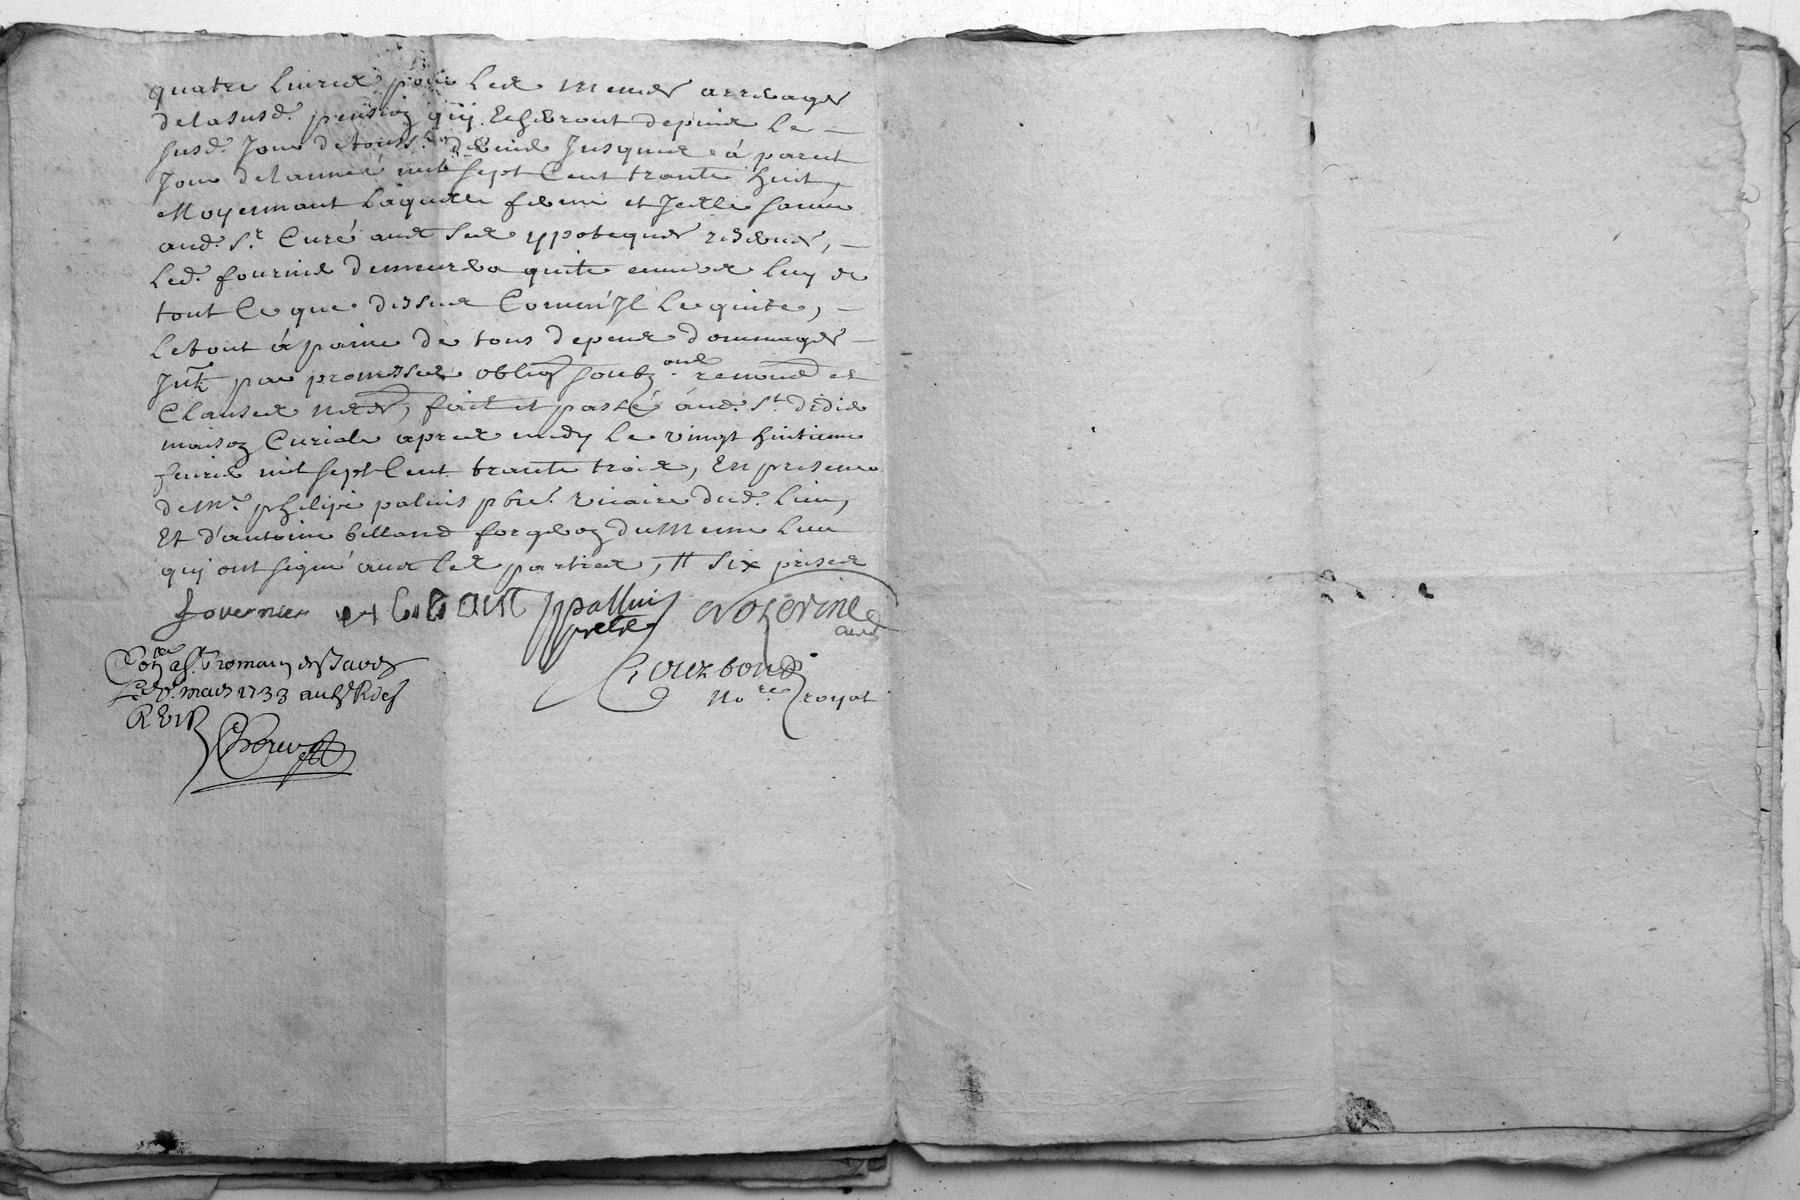 quatre livres pour les memes arrerages
de la susd. pension quy Echevront depuis le
susd. Jour de touss.ts dernier Jusques à pareil
Jour de lannée mil sept Cent trante huit,
Moyennant laquelle ferme et Jcelle somme
aud. s.r Curé avec ses ypoteques reservés,
led. fournier demeurera quite envers luy de
tout Ce que dessus Comm'Jl le quitte,
le tout à paine de tous depens dommages
Jnts par promesses oblig soubz.ons renond et
Clauses necess, fait et passé aud. St. didie
maison Curiale apres midy le vingt huitieme
fevrier mil sept Cent trante trois, En presence
de M.e philipe paluis pbre. vicaire dud. lieu,
Et d'antoine billand forgeron du Meme lieu
quy ont signé avec les parties, # six prises
fovernier A billant ppalluis prestre Noyerine
curé
Con.lé a St romain des Jaods
Le mars 1733
Courbon
No.re royal